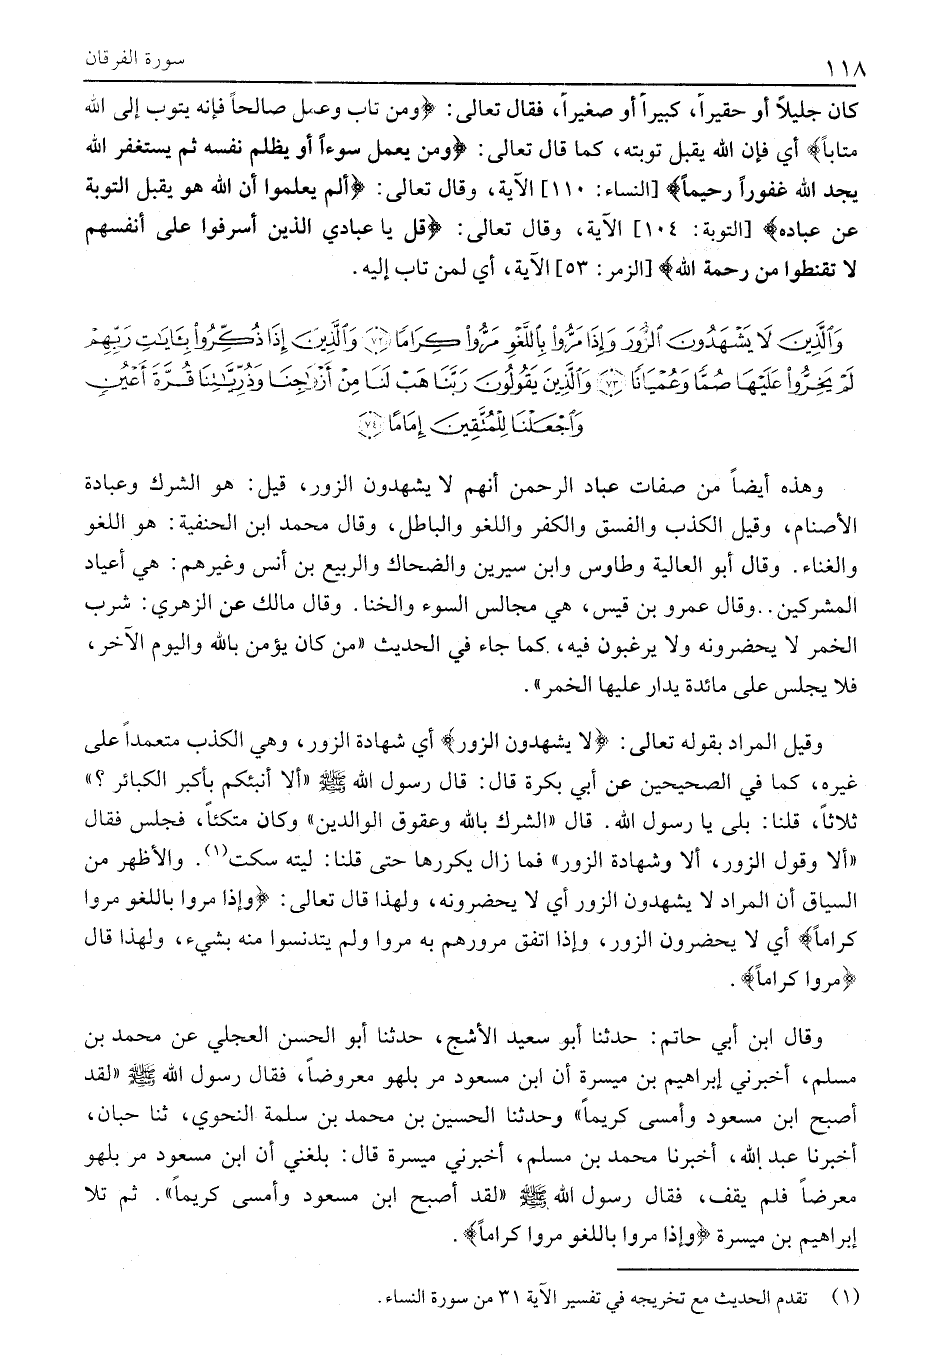 ١١٨ سورة الفرقان
كان جليلاً أو حقيراً، كبيراً أو صغيراً، فقال تعالى: ﴿ومن تاب وعمل صالحاً فإنه يتوب إلى الله
متاباً﴾ أي فإن الله يقبل توبته، كما قال تعالى: ﴿ومن يعمل سوءاً أو يظلم نفسه ثم يستغفر الله
يجد الله غفوراً رحيماً﴾ [النساء: ١١٠] الآية، وقال تعالى: ﴿ألم يعلموا أن الله هو يقبل التوبة
عن عباده﴾ [التوبة: ١٠٤] الآية، وقال تعالى: ﴿قل يا عبادي الذين أسرفوا على أنفسهم
لا تقنطوا من رحمة الله﴾ [الزمر: ٥٣] الآية، أي لمن تاب إليه.
وَٱلَّذِينَ لَا يَشْهَدُونَ ٱلزُّورَ وَإِذَا مَرُّوا۟ بِٱللَّغْوِ مَرُّوا۟ كِرَامًا ﴿٧٢﴾ وَٱلَّذِينَ إِذَا ذُكِّرُوا۟ بِـَٔايَـٰتِ رَبِّهِمْ
لَمْ يَخِرُّوا۟ عَلَيْهَا صُمًّا وَعُمْيَانًا ﴿٧٣﴾ وَٱلَّذِينَ يَقُولُونَ رَبَّنَا هَبْ لَنَا مِنْ أَزْوَٰجِنَا وَذُرِّيَّـٰتِنَا قُرَّةَ أَعْيُنٍ
وَٱجْعَلْنَا لِلْمُتَّقِينَ إِمَامًا ﴿٧٤﴾
وهذه أيضاً من صفات عباد الرحمن أنهم لا يشهدون الزور، قيل: هو الشرك وعبادة
الأصنام، وقيل الكذب والفسق والكفر واللغو والباطل، وقال محمد ابن الحنفية: هو اللغو
والغناء. وقال أبو العالية وطاوس وابن سيرين والضحاك والربيع بن أنس وغيرهم: هي أعياد
المشركين..وقال عمرو بن قيس، هي مجالس السوء والخنا. وقال مالك عن الزهري: شرب
الخمر لا يحضرونه ولا يرغبون فيه، كما جاء في الحديث «من كان يؤمن بالله واليوم الآخر،
فلا يجلس على مائدة يدار عليها الخمر».
وقيل المراد بقوله تعالى: ﴿لا يشهدون الزور﴾ أي شهادة الزور، وهي الكذب متعمداً على
غيره، كما في الصحيحين عن أبي بكرة قال: قال رسول الله ﷺ «ألا أنبئكم بأكبر الكبائر ؟»
ثلاثاً، قلنا: بلى يا رسول الله. قال «الشرك بالله وعقوق الوالدين» وكان متكئاً، فجلس فقال
«ألا وقول الزور، ألا وشهادة الزور» فما زال يكررها حتى قلنا: ليته سكت(١). والأظهر من
السياق أن المراد لا يشهدون الزور أي لا يحضرونه، ولهذا قال تعالى: ﴿وإذا مروا باللغو مروا
كراماً﴾ أي لا يحضرون الزور، وإذا اتفق مرورهم به مروا ولم يتدنسوا منه بشيء، ولهذا قال
﴿مروا كراماً﴾.
وقال ابن أبي حاتم: حدثنا أبو سعيد الأشج، حدثنا أبو الحسن العجلي عن محمد بن
مسلم، أخبرني إبراهيم بن ميسرة أن ابن مسعود مر بلهو معروضاً، فقال رسول الله ﷺ «لقد
أصبح ابن مسعود وأمسى كريماً» وحدثنا الحسين بن محمد بن سلمة النحوي، ثنا حبان،
أخبرنا عبد الله، أخبرنا محمد بن مسلم، أخبرني ميسرة قال: بلغني أن ابن مسعود مر بلهو
معرضاً فلم يقف، فقال رسول الله ﷺ «لقد أصبح ابن مسعود وأمسى كريماً». ثم تلا
إبراهيم بن ميسرة ﴿وإذا مروا باللغو مروا كراماً﴾.
(١) تقدم الحديث مع تخريجه في تفسير الآية ٣١ من سورة النساء.